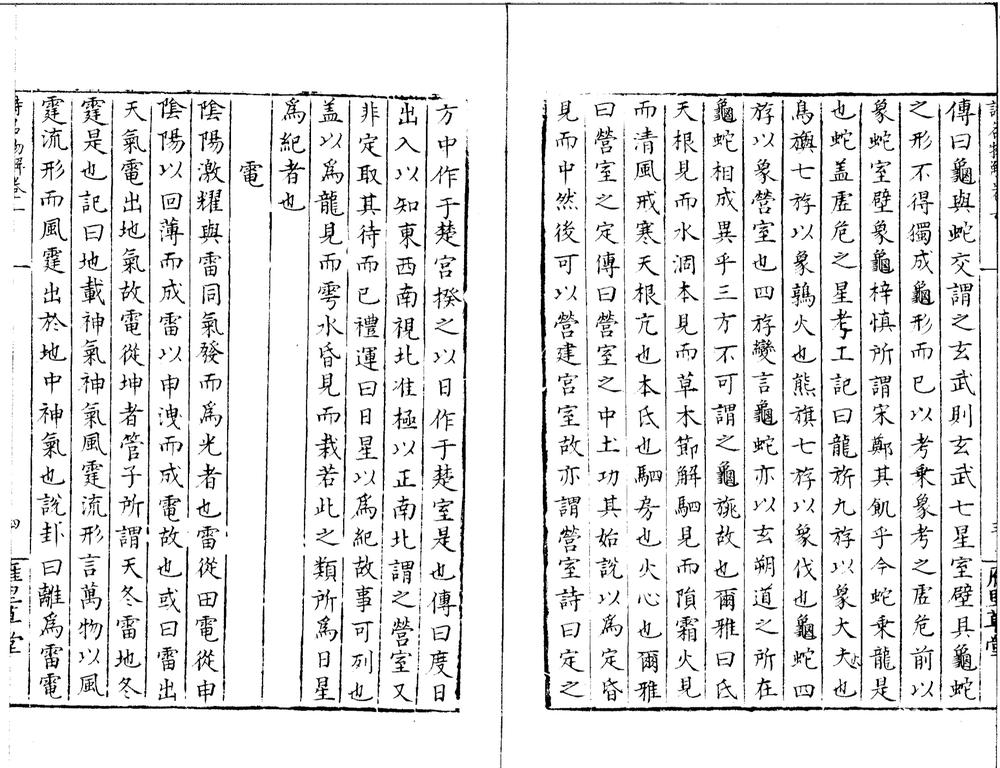 傳曰龜與蛇交謂之玄武則玄武七星室壁具龜蛇
之形不得獨成龜形而已以考乘象考之虛危前以
象蛇室壁象龜梓慎所謂宋鄭其飢乎今蛇乘龍是
也蛇蓋虛危之星考工記曰龍旂九斿以象大火也
鳥旟七斿以象鶉火也熊旗七斿以象伐也龜蛇四
斿以象營室也四斿變言龜蛇亦以玄朔道之所在
龜蛇相成異乎三方不可謂之龜旐故也爾雅曰氐
天根見而水涸本見而草木節解駟見而隕霜火見
而清風戒寒天根亢也本氐也駟房也火心也爾雅
曰營室之定傳曰營室之中土功其始說以為定昏
見而中然後可以營建宮室故亦謂營室詩曰定之
方中作于楚宮揆之以日作于楚室是也傳曰度日
出入以知東西南視北准極以正南北謂之營室又
非定取其待而已禮運曰日星以為紀故事可列也
盖以為龍見而雩水昏見而栽若此之類所為日星
為紀者也
電
陰陽激耀與雷同氣發而為光者也雷從田電從申
陰陽以回薄而成雷以申洩而成電故也或曰雷出
天氣電出地氣故電從坤者管子所謂天冬雷地冬
霆是也記曰地載神氣神氣風霆流形言萬物以風
霆流形而風霆出於地中神氣也說卦曰離為雷電
四